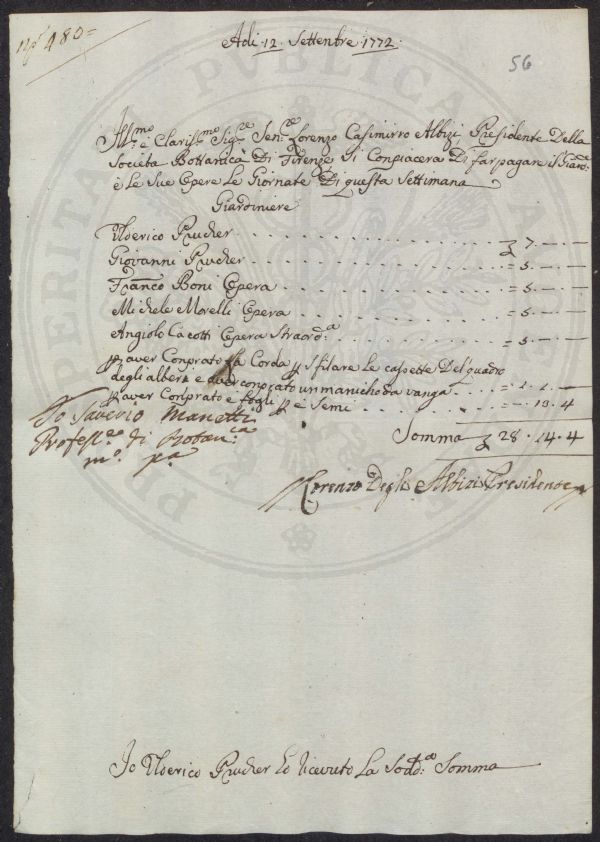 Nº 480=
Adi 12 Settenbre 1772
56
Jll.mo e Clarisſ.mo Sig.re Sen.re Lorenzo Casimirro Albizi Presidente Della
Societa Bottanica Di Firenze Si Conpiacera Di far pagare i Giard.e
e Le Sue Opere Le Giornate Di questa Settimana
Giardiniere
Ulderico Prucher . . . . . . . . . . . . £ 7. — . —
Giovanni Prucher . . . . . . . . . . . = 5. — . —
Franco Boni Opera . . . . . . . . . . = 5. — . —
Michele Morelli Opera . . . . . . . . = 5. — . —
Angiolo Cacotti Opera Straord.a . . . . = 5. — . —
p aver Conprato la Corda p Isfilare le casſette Del quadro
degli alberi e aver conprato un manicho da vanga . . . = 1. 1. —
p aver Conprato e fogli p i Semi . . . . . — 13. 4
Somma £ 28. 14. 4
Io Saverio Manetti
Profesſ.re di Botan.ca
m.o p.a
Lorenzo Degli Albizi Presidente
Io Ulderico Prucher ho riceuto La Sodd.a Somma
PROSPERITA PUBLICA